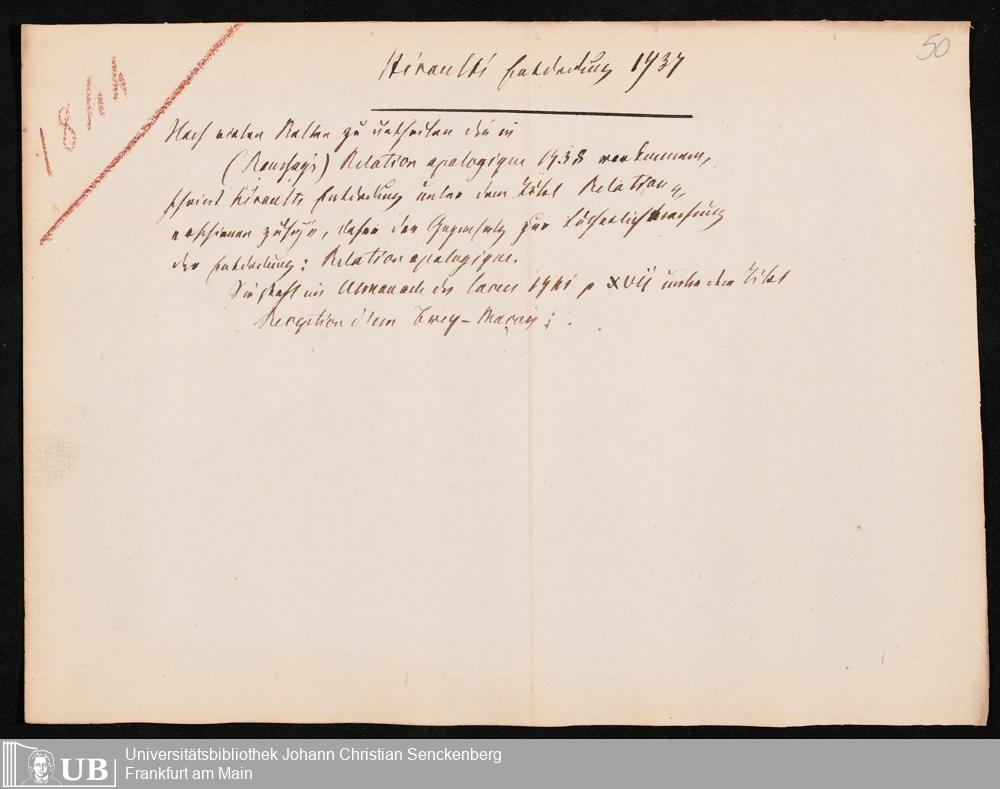 50
1844
Hérault's Entdeckung 1737
Nach vielen Stellen zu urtheilen die in
(Ramsay's) Relation apologique 1738 vorkommen,
scheint Hérault's Entdeckung unter dem Titel Relation
erschienen zu seyn, daher der Gegensatz zur Lächerlichmachung
der Entdeckung: Relation apologique.
Sie steht im Almanach des Cocus 1741 p XVII unter dem Titel
Reception d'un Frey-Maçon; .
UB
Universitätsbibliothek Johann Christian Senckenberg
Frankfurt am Main